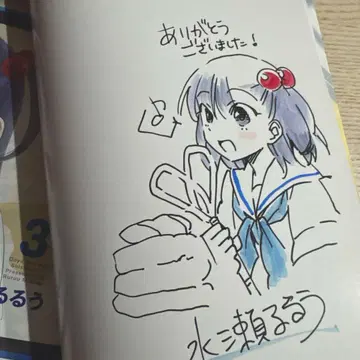 ありがとう
ございました!
水瀬るるう
3
るう